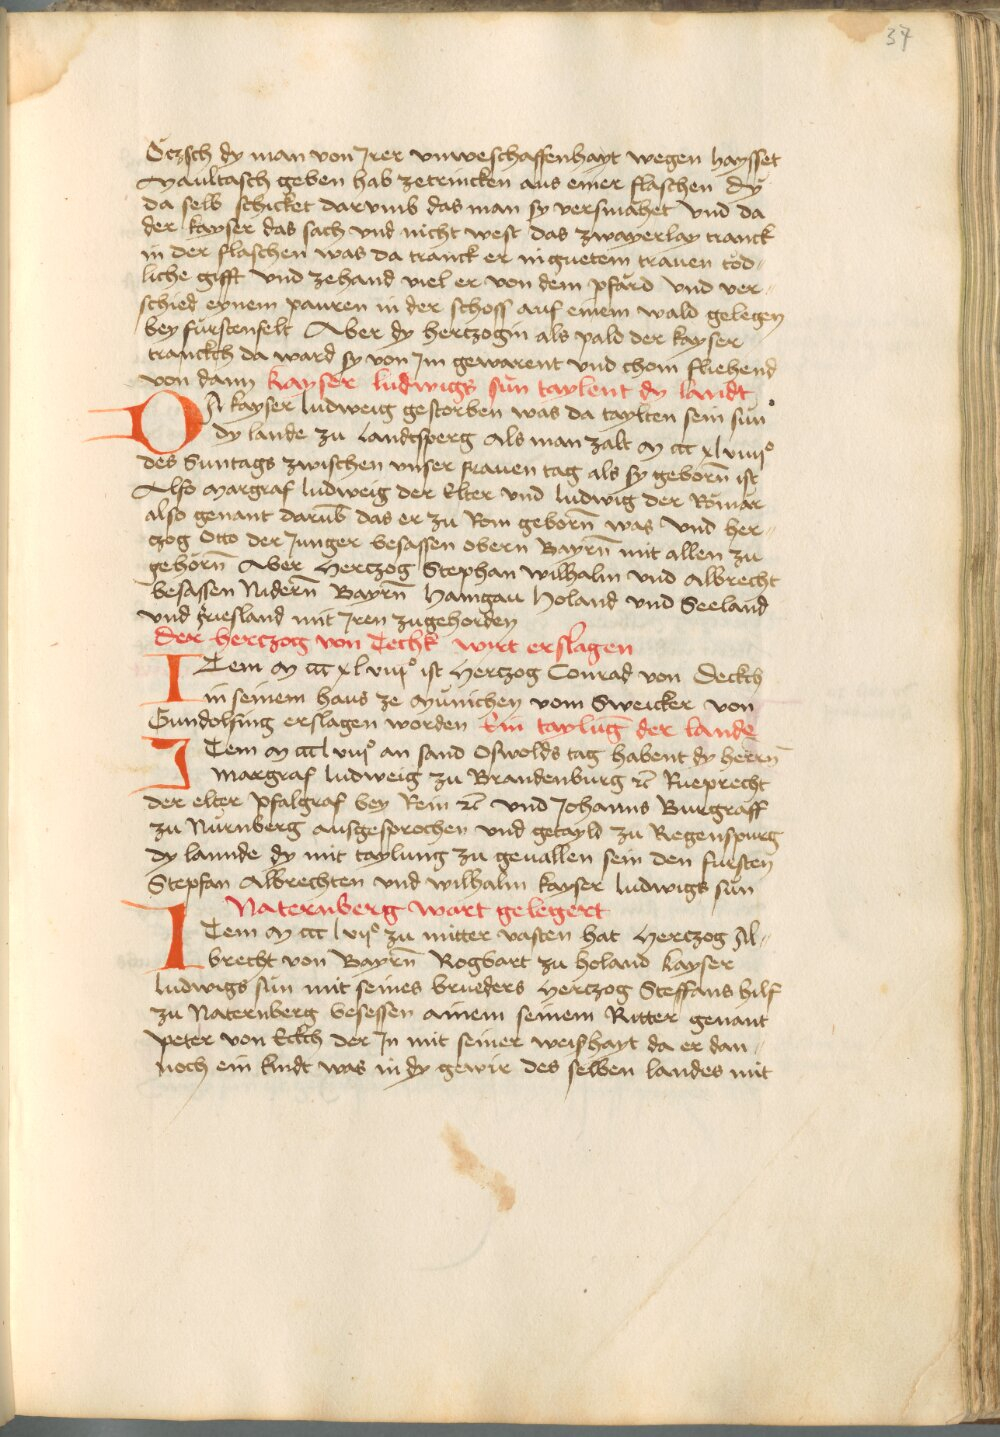 37
Ötzsch dy man von Jrer vnweschaffenhayt wegen haysset
Maultasch geben hab zetrincken aus einer flaschen dy
da selb schicket darumb das man sy versmahet vnd da
der kayser das sach vnd nicht west das zwayerlay tranck
in der flaschen was da tranck er in guetem trauen töd-
liche gifft vnd zehand viel er von dem pfärd vnd ver-
schied eynem pauren in der schoss auf einem wald gelegen
bey fürstenfelt Aber dy hertzogin als pald der kayser
tranckch da ward sy von Jm gewarent vnd chom fliehend
von dann kayser ludwigs sün taylent dy landt
DA kayser ludweig gestorben was da taylten sein sün
dy lande zu Landtsperg Als man zalt M ccc xlviiijo
des Suntags zwischen vnser frauen tag als sy geborñ ist
Also Margraf ludweig der Elter vnd ludwig der Römär
also genant darub̃ das er zu Rom geborñ was vnd her-
czog Otto der Junger besassen obern Bayrñ mit allen zu
gehörñ Aber Hertzog Stephan wilhalm vnd Albrecht
besassen Niderñ Bayrñ Haingau Holand vnd Seeland
vnd friesland mit Jren zugehorden
Der hertzog von Techk wirt erslagen
ITem M ccc xlviijo ist Hertzog Conrad von Deckch
in seinem haus ze Münichen vom Sweicker von
Gundolfing erslagen worden Ein taylug̃ der lande
ITem M ccc lviijo an sand Oswolds tag habent dy herrñ
Margraf ludweig zu Brandenburg ⁊c̃ Rueprecht
der elter pfalgraf bey Rein ⁊c̃ vnd Johanns Burgraff
zu Nürnberg ausgesprochen vnd getayld zu Regenspurg
dy lannde dy mit taylung zu geuallen sein den fursten
Stepfan Albrechten vnd wilhalm kayser ludwigs sün
Naternberg wart gelegert
ITem M ccc lvijo zu mitter vasten hat Hertzog Al-
brecht von Bayrñ Rogbart zu holand kayser
ludwigs sün mit seines brueders Hertzog Steffans hilf
zu Naternberg besessen ainem seinem Ritter genant
peter von Eckch der Jn mit seiner weishayt da er dan-
noch ein kindt was in dy gewir des selben landes mit